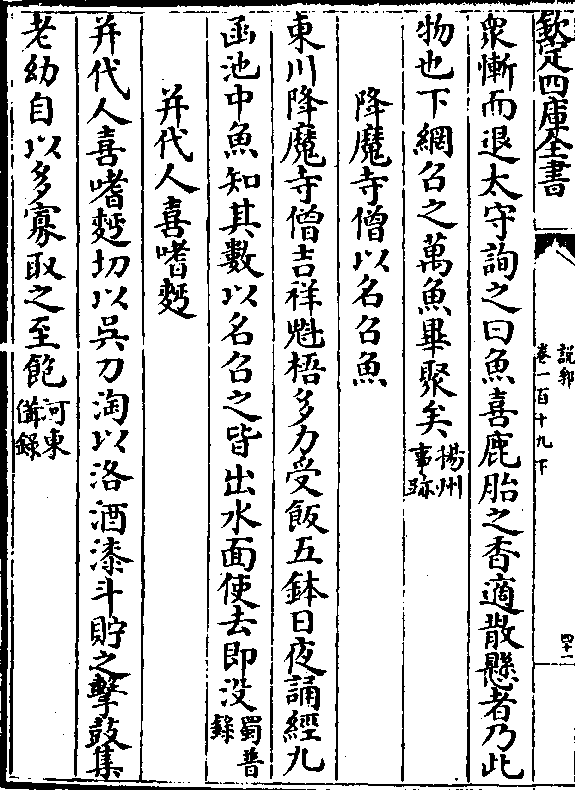 欽定四庫全書
說郛
卷一百十九下
四十一
衆慚而退太守詢之曰魚喜鹿胎之香適散懸者乃此
物也下網召之萬魚畢聚矣揚州事跡
降魔寺僧以名召魚
東川降魔寺僧吉祥魁梧多力受飯五鉢日夜誦經九
函池中魚知其數以名召之皆出水面使去即没蜀普錄
并代人喜嗜麪
并代人喜嗜麪切以吳刀淘以洛酒漆斗貯之擊鼓集
老幼自以多寡取之至飽河東備錄